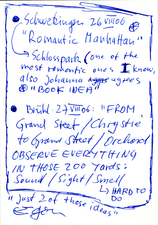 Schwetzingen 26 VIII 06
"Romantic Manhattan"
Schlosspark (one of the
most romantic ones I know,
also Johanna agrees
"BOOK IDEA"
Brühl 27 VIII 06: "FROM
Grand Street / Chrystie
to Grand Street / Orchard
OBSERVE EVERYTHING
IN THOSE 200 YARDS:
Sound / Sight / Smell
HARD TO
DO
"Just 2 of those ideas"